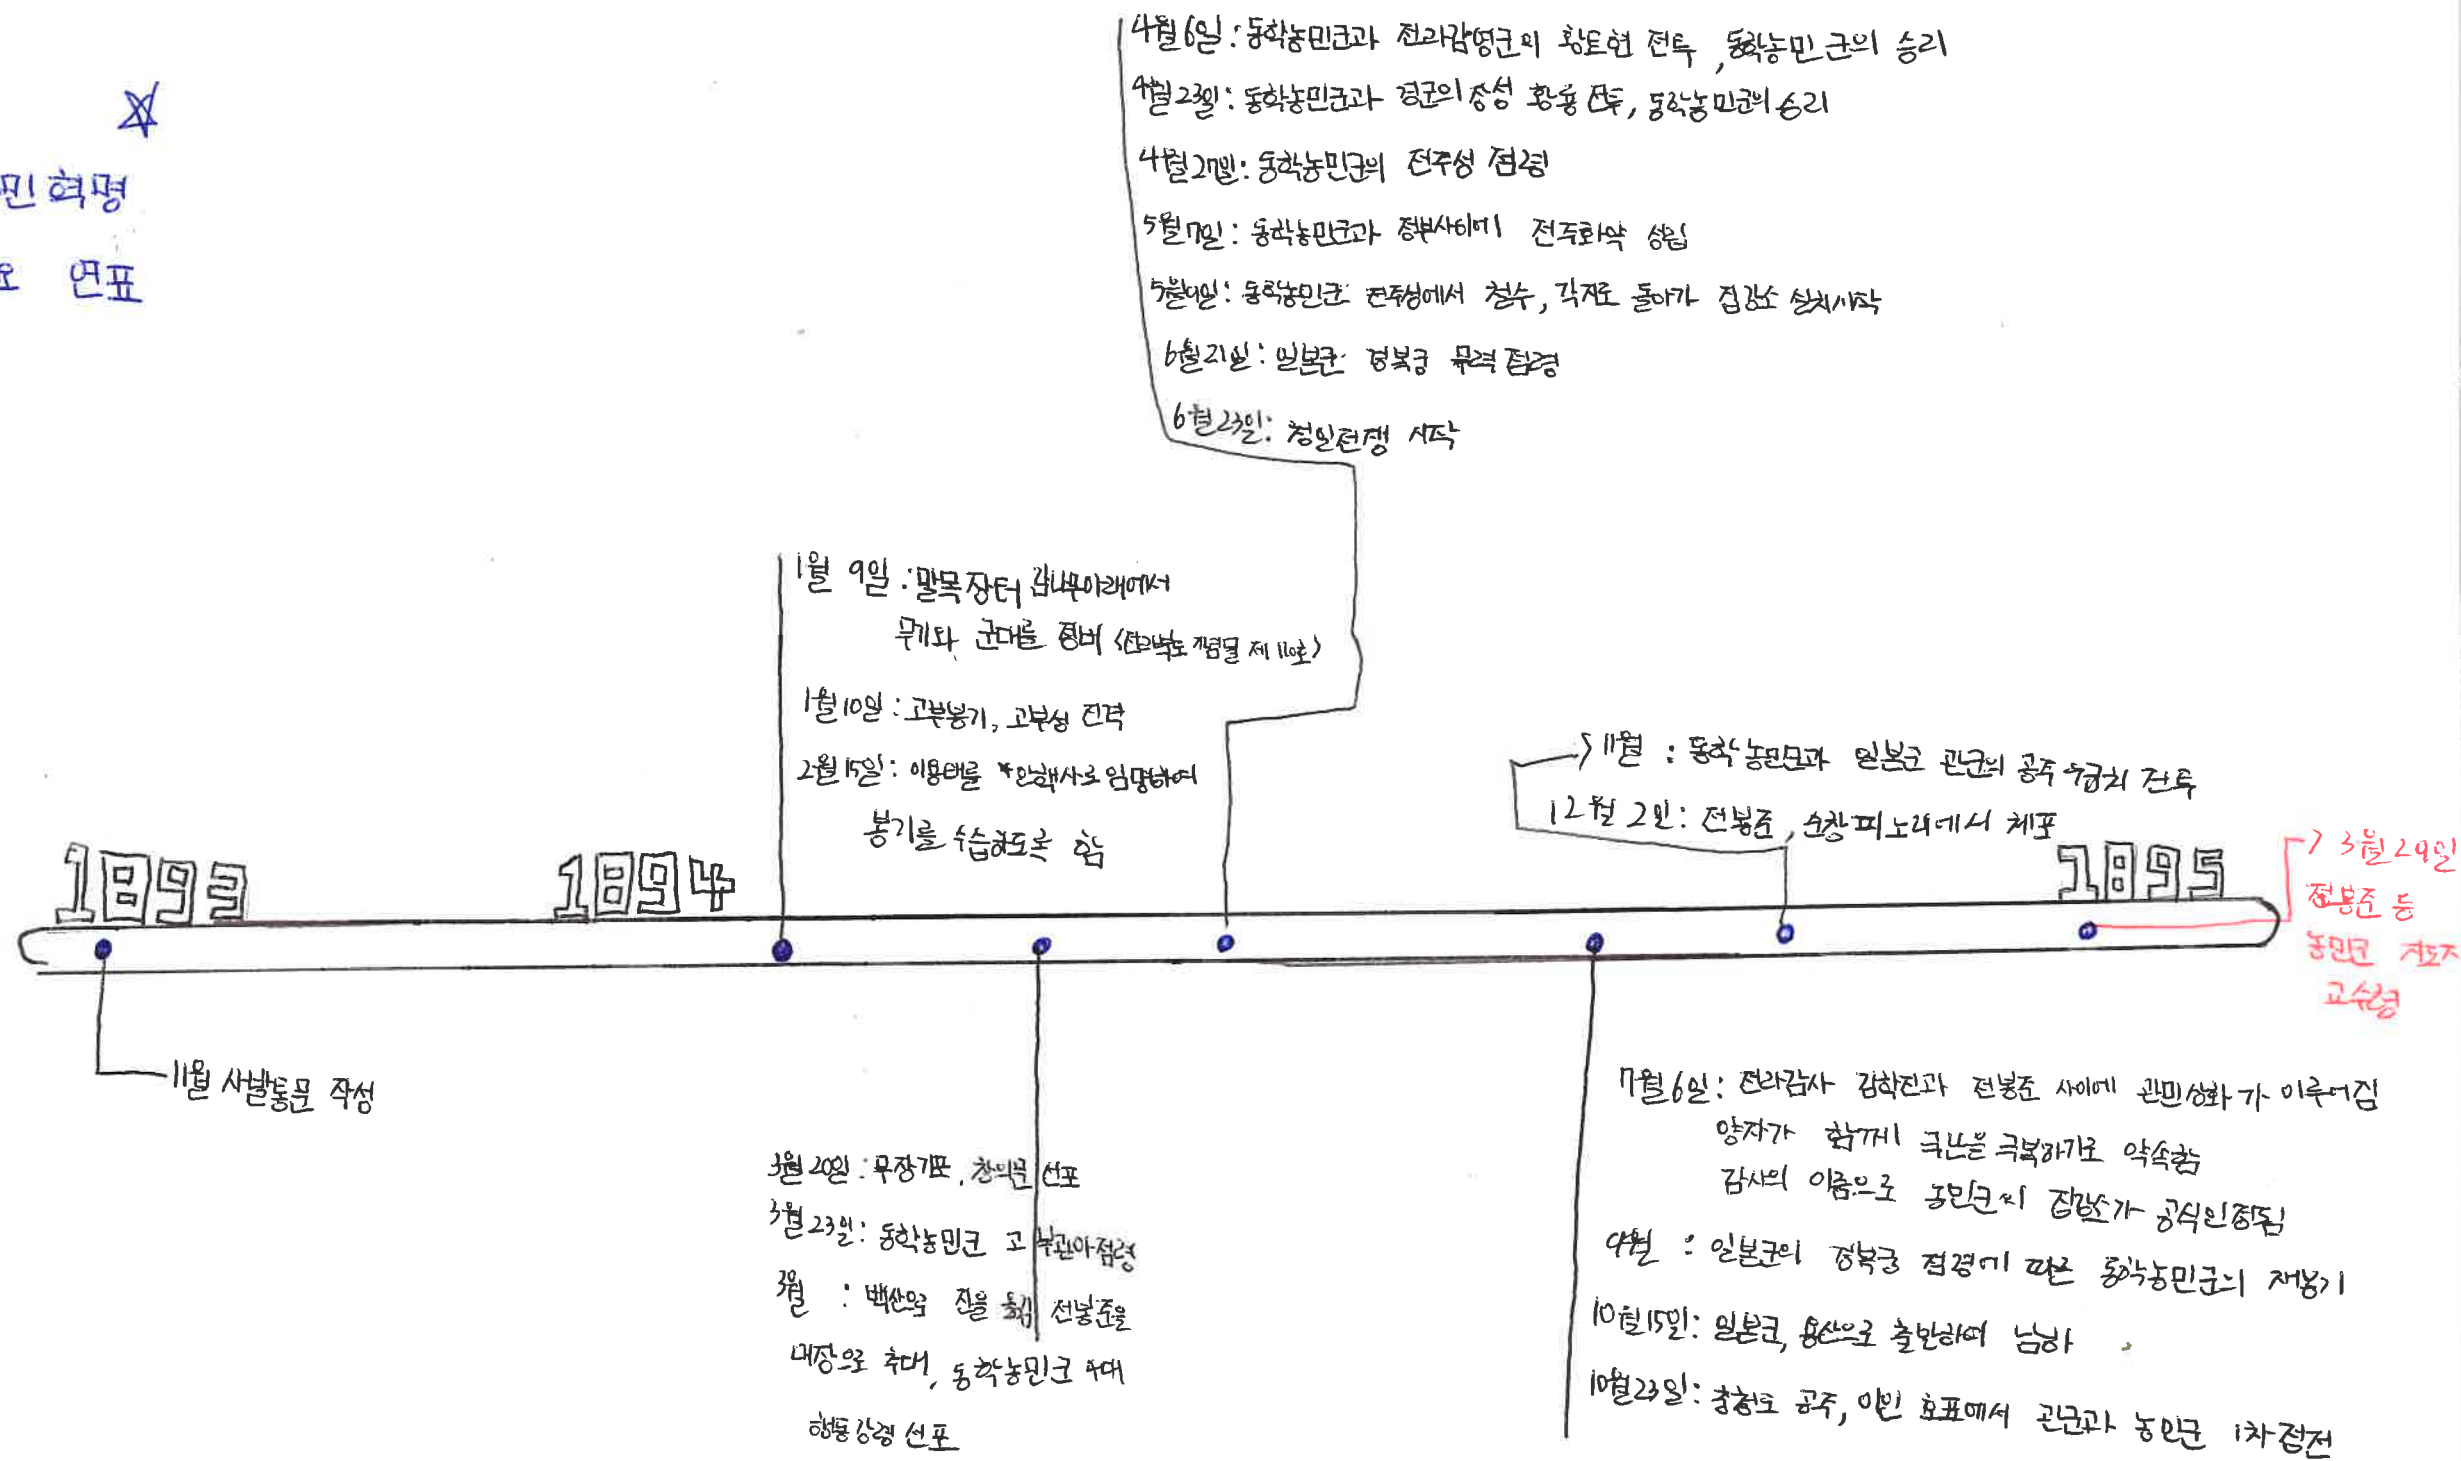 민혁명
요 연표
4월 6일 : 동학농민군과 전라감영군의 황토현 전투, 동학농민군의 승리
4월 23일 : 동학농민군과 경군의 장성 황룡 전투, 동학농민군의 승리
4월 27일 : 동학농민군의 전주성 점령
5월 7일 : 동학농민군과 정부사이에 전주화약 성립
5월 9일 : 동학농민군 전주성에서 철수, 각지로 돌아가 집강소 설치시작
6월 21일 : 일본군 경복궁 무력점령
6월 23일 : 청일전쟁 시작
1월 9일 : 말목장터 감나무아래에서
무기와 군대를 정비 <전라북도 기념물 제110호>
1월 10일 : 고부봉기, 고부성 진격
2월 15일 : 이용태를 *안핵사로 임명하여
봉기를 수습하도록 함
> 11월 : 동학농민군과 일본군 관군의 공주 우금치 전투
12월 2일 : 전봉준, 순창 피노리에서 체포
1893
1894
1895
> 3월 29일
전봉준 등
농민군 지도자
교수형
11월 사발통문 작성
3월 20일 : 무장기포, 창의문 선포
3월 23일 : 동학농민군 고부관아점령
3월 : 백산으로 진을 옮김 전봉준을
대장으로 추대, 동학농민군 4대
행동강령 선포
7월 6일 : 전라감사 김학진과 전봉준 사이에 관민상화가 이루어짐
양자가 함께 국난을 극복하기로 약속함
감사의 이름으로 농민군의 집강소가 공식인정됨
9월 : 일본군의 경복궁 점령에 따른 동학농민군의 재봉기
10월 15일 : 일본군, 용산으로 출발하여 남하
10월 23일 : 충청도 공주, 이인 효포에서 관군과 농민군 1차접전